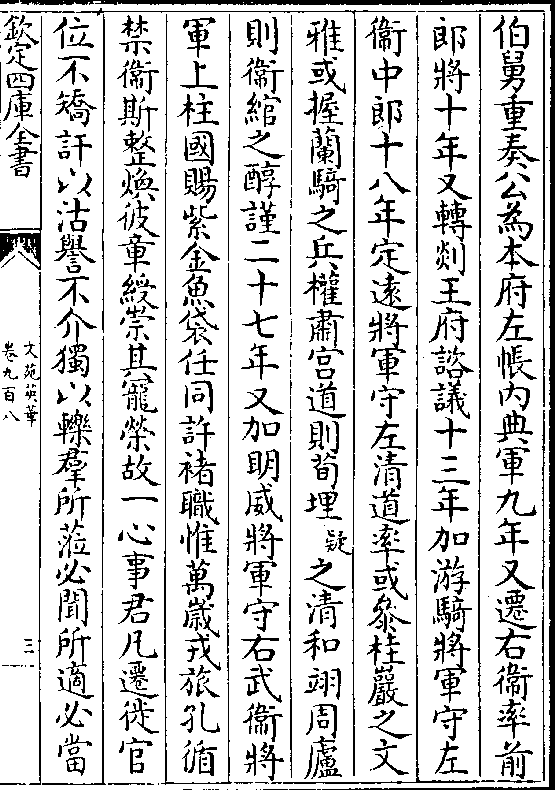 伯舅重奏公為本府左帳內典軍九年又遷右衞率前
郎將十年又轉剡王府諮議十三年加游騎將軍守左
衞中郎十八年定遠將軍守左清道率或叅桂巖之文
雅或握蘭騎之兵權肅宫道則荀埋疑之清和翊周廬
則衞綰之醇謹二十七年又加明威將軍守右武衞將
軍上柱國賜紫金魚袋任同許褚職惟萬歳戎旅孔循
禁衞斯整煥彼章綬崇其寵榮故一心事君凡遷徙官
位不矯訐以沽譽不介獨以轢羣所蒞必聞所適必當
欽定四庫全書
文苑英華
卷九百八
三